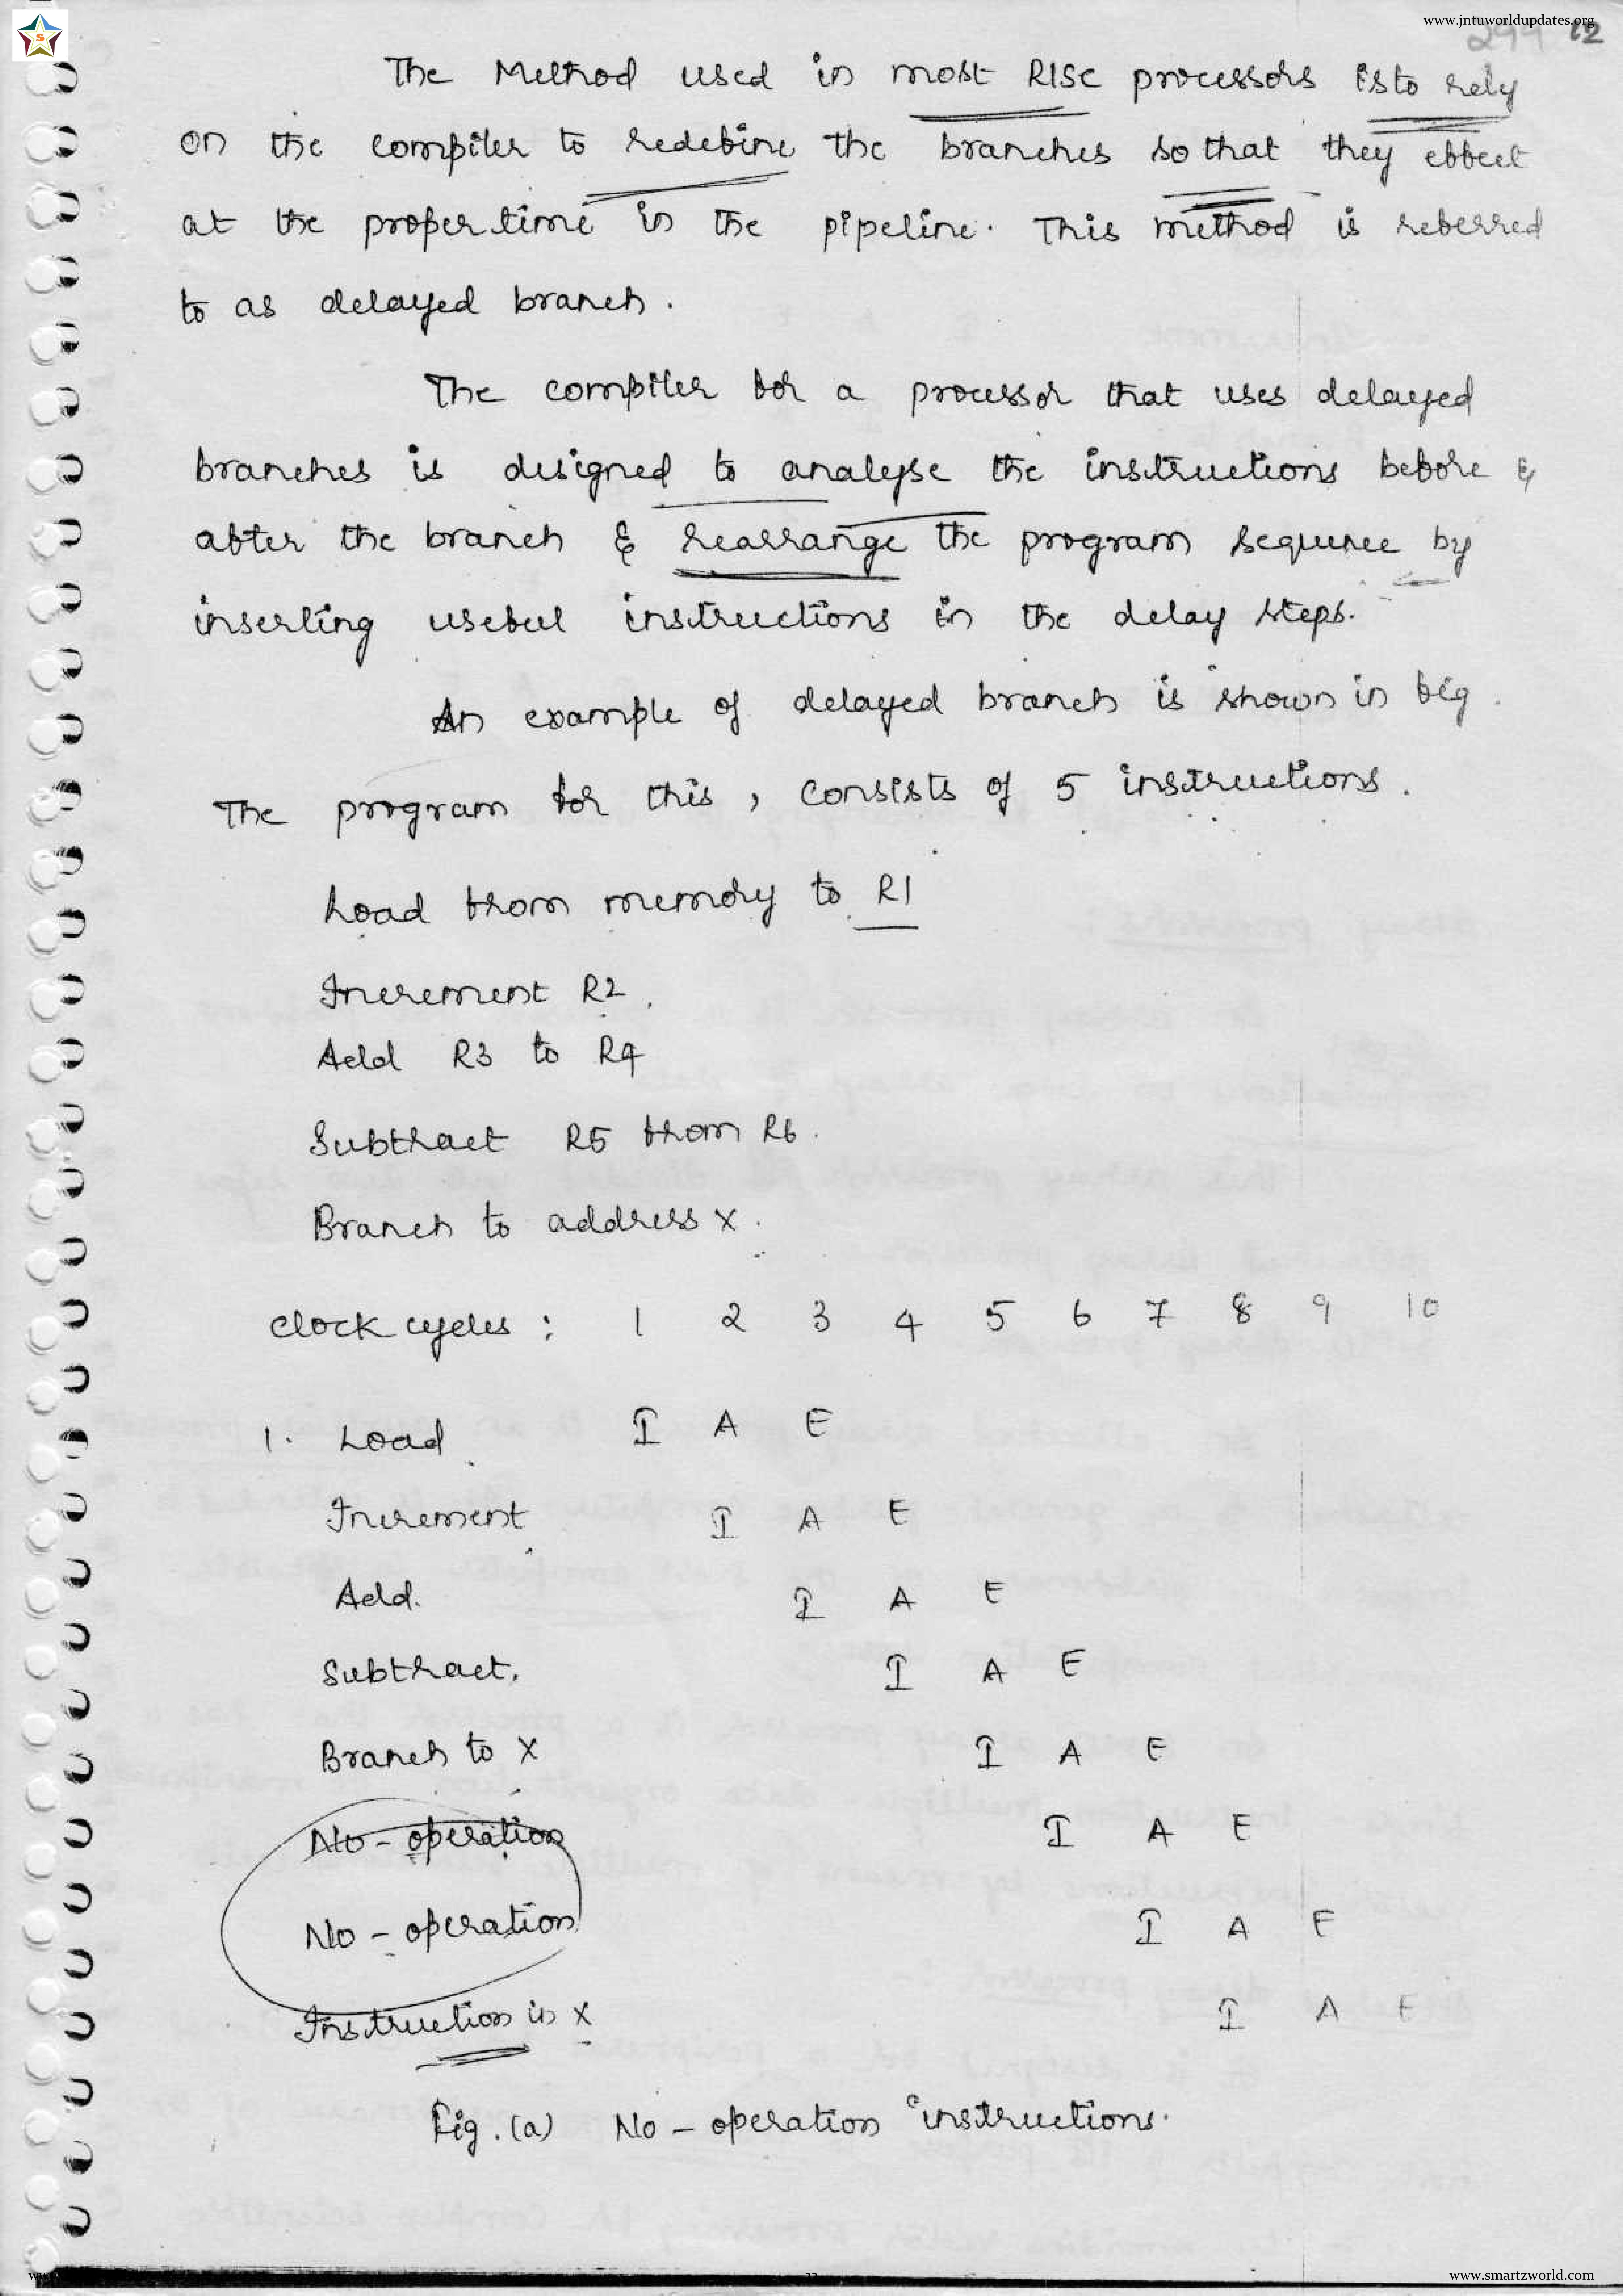 www.jntuworldupdates.org
12
The Method used in most RISC processors is to rely
on the compiler to redefine the branches so that they effect
at the proper time in the pipeline. This method is referred
to as delayed branch.
The compiler for a processor that uses delayed
branches is designed to analyse the instructions before &
after the branch & rearrange the program sequence by
inserting useful instructions in the delay steps.
An example of delayed branch is shown in fig.
The program for this, consists of 5 instructions.
Load from memory to R1
Increment R2.
Add R3 to R4
Subtract R5 from R6.
Branch to address X.
Clock cycles : 1 2 3 4 5 6 7 8 9 10
1. Load I A E
Increment I A E
Add. I A E
Subtract. I A E
Branch to X I A E
No-operation I A E
No-operation I A E
Instruction in X I A E
Fig. (a) No-operation instructions.
www.smartzworld.com